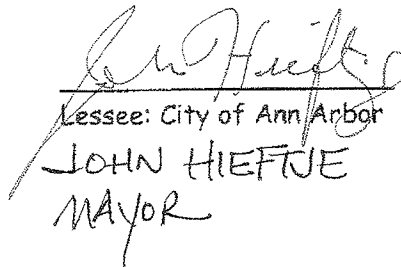 John Hieftje
Lessee: City of Ann Arbor
JOHN HIEFTJE
MAYOR